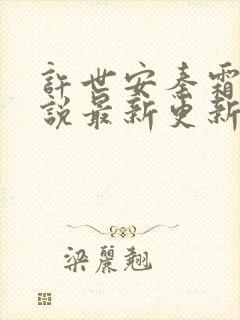 許世安秦霜
說最新更新
梁麗翹